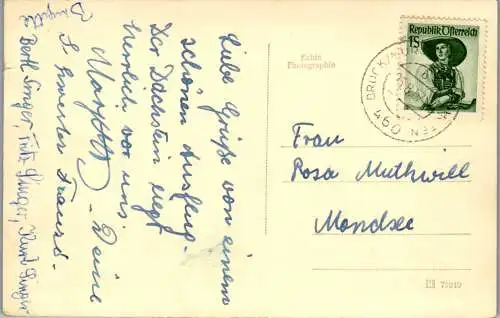 Liebe Grüße von einem
schönen Ausflug.
Der Dachstein liegt
herrlich vor uns
Deine
S. Franzi.
Bertl Singer, Fritz Singer, Kurt Singer
Echte
Photographie
Republik Österreich
15
BRUCK/
460
Frau
Rosa Muthwill
Mondsee